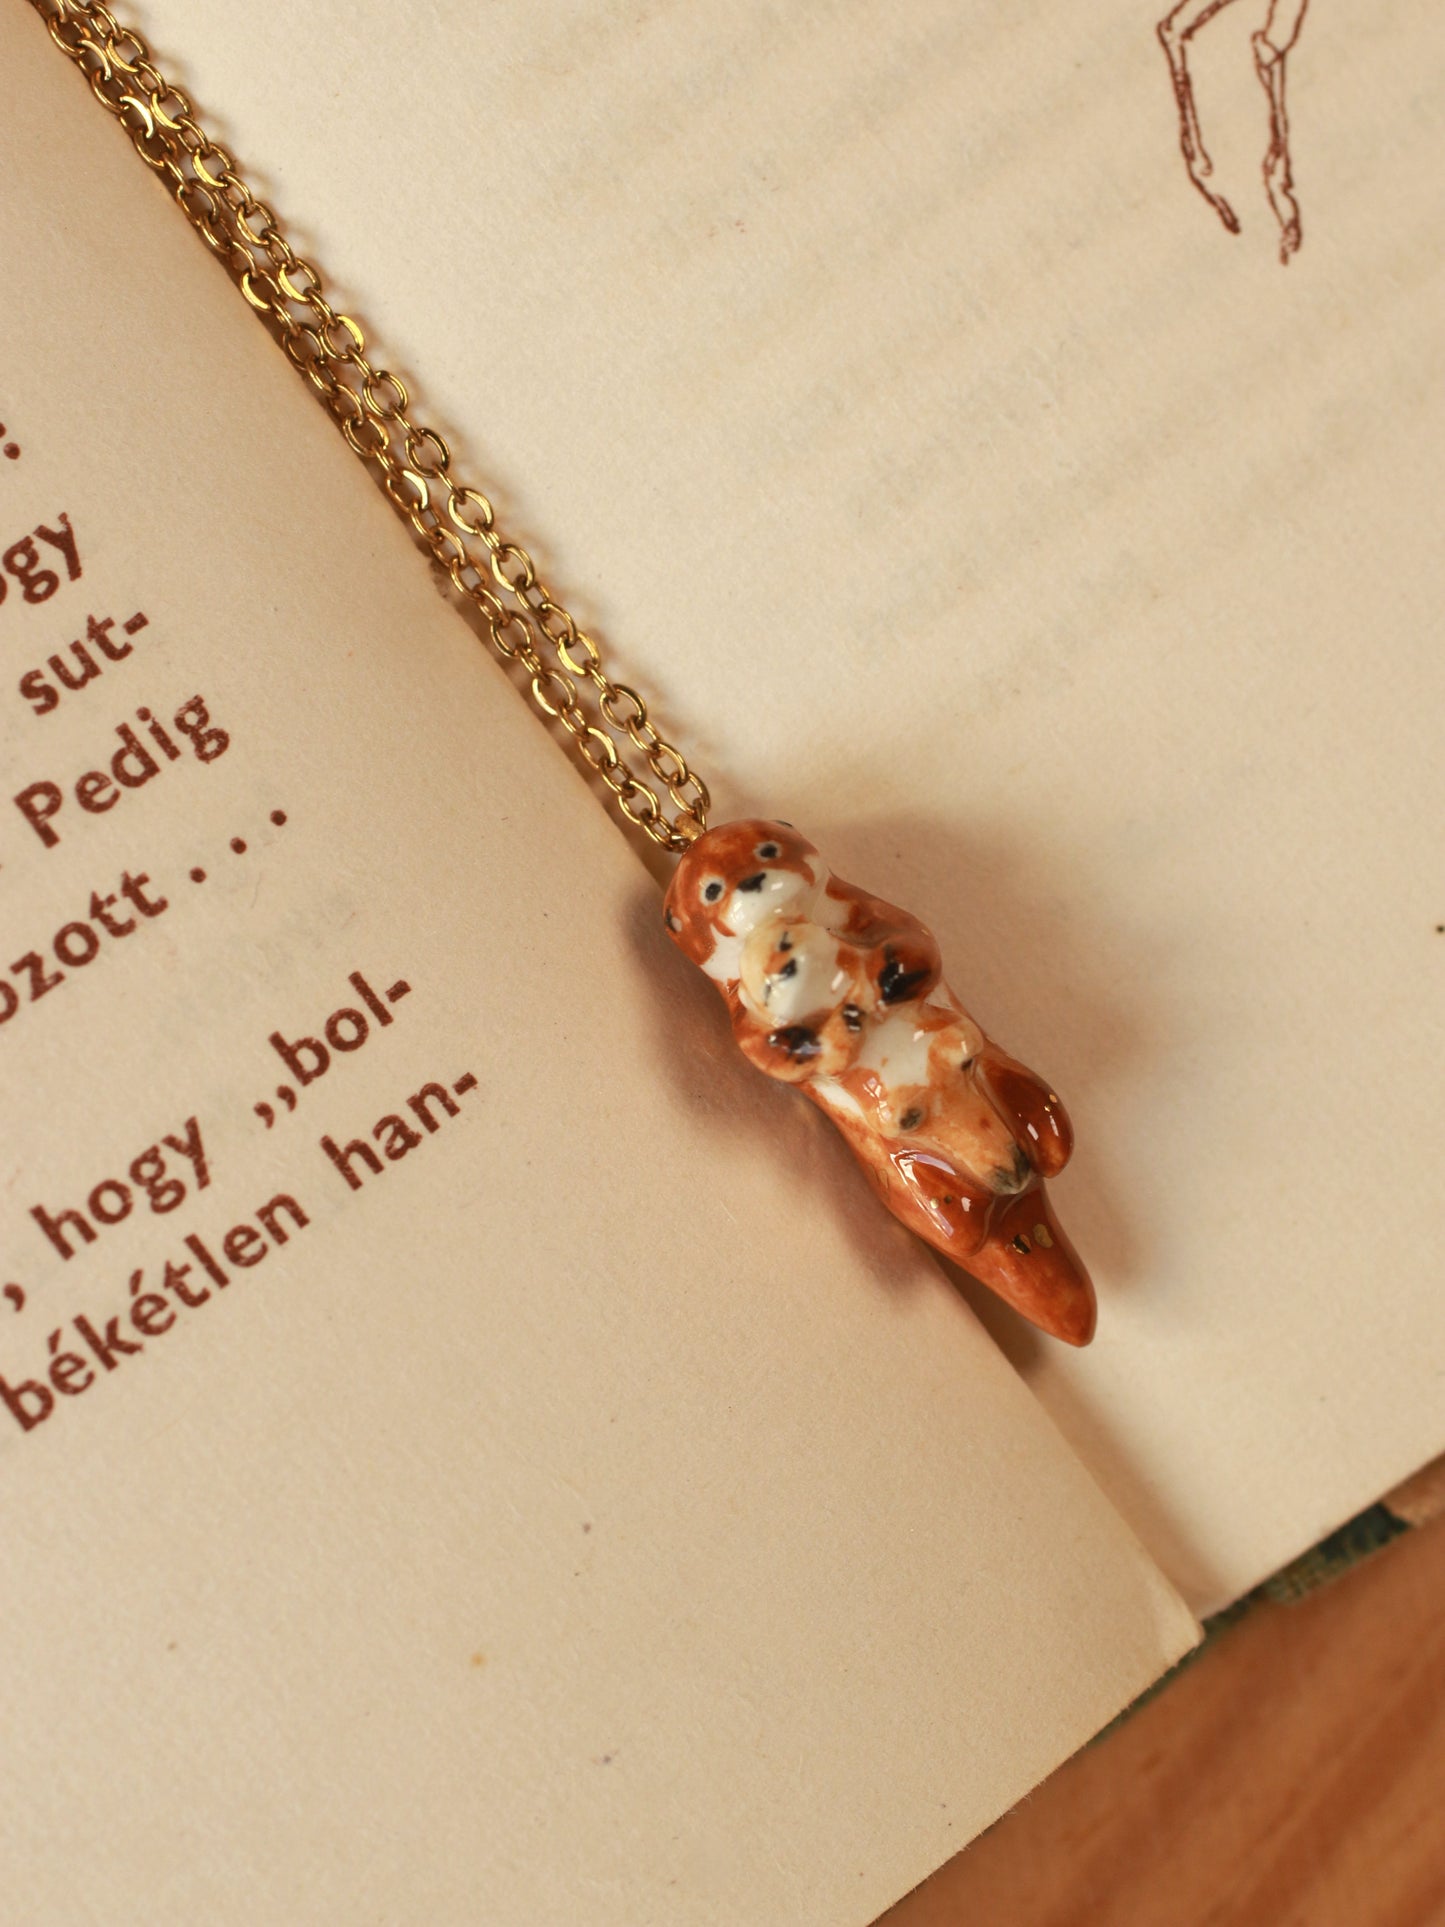 :
ogy
sut-
Pedig
ozott . . .
, hogy ,,bol-
békétlen han-